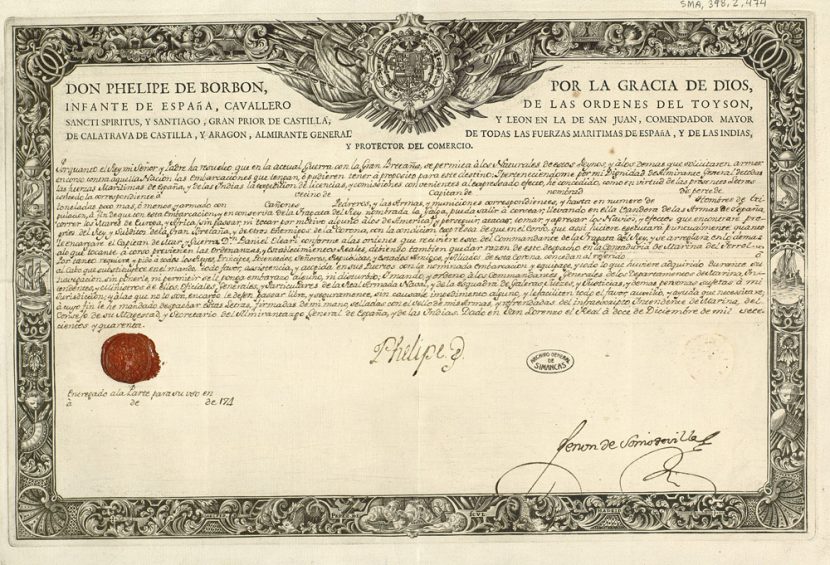 SMA, 398, 2, 474
DON PHELIPE DE BORBON, POR LA GRACIA DE DIOS,
INFANTE DE ESPAñA, CAVALLERO DE LAS ORDENES DEL TOYSON,
SANCTI SPIRITUS, Y SANTIAGO, GRAN PRIOR DE CASTILLA, Y LEON EN LA DE SAN JUAN, COMENDADOR MAYOR
DE CALATRAVA DE CASTILLA, Y ARAGON, ALMIRANTE GENERAL DE TODAS LAS FUERZAS MARITIMAS DE ESPAñA, Y DE LAS INDIAS,
Y PROTECTOR DEL COMERCIO.
Por quanto el Rey mi Señor y Padre ha resuelto que en la actual Guerra con la Gran Bretaña se permita à los Naturales de estos Reynos, y à los demas que solicitaren armar
en corso contra aquella Nacion las Embarcaciones que tengan, ò pudieren tener à proposito para este destino: Perteneciendome por mi Dignidad de Almirante General de todas
las fuerzas Maritimas de España, y de las Indias la expedicion de licencias, y comisiones convenientes al expresado efecto, he concedido, como en virtud de las presentes Letras
concedo la correspondiente à vecino de Capitan de nombrad de porte de
toneladas poco mas, ò menos, y armado con Cañones Pedreros, y las Armas, y municiones correspondientes, y hasta en numero de hombres de tri-
pulacion, à fin de que con esta Embarcacion y en conserva de la Fragata del Rey nombrada la pueda salir à corsear, llevando en ella Bandera de las Armas de España,
correr los Mares de Europa, y Africa, sin passar, ni tocar por motivo alguno à los de America, y perseguir, atacar, tomar, y apresar los Navios, y efectos que encontrare pro-
prios del Rey, y Subditos de la Gran Bretaña, y de otros Enemigos de la Corona, con la condicion expresa de que en el Corso, que assi hiciere executarà puntualmente quanto
le encargare el Capitan de Mar, y Guerra Dn. Daniel conforme à las ordenes que tuviere este del Commandante de la Fragata del Rey, y se arreglarà en lo demas
al cabo que substituyere en el mando, todo favor, assistencia, y acogida en sus Puertos con la nominada embarcacion y equipage, y todo lo que huviere adquirido durante su
navegacion, sin ponerle, ni permitir se le ponga embarazo alguno, ni disturbio: Y mando, y ordeno à los Commandantes Generales de los Departamentos de Marina, In-
tendentes, y Ministros de ellos, Oficiales Generales, y Particulares de la Real Armada Naval, y de la Esquadra de Galeras, Jueces, y Justicias, y demas personas sujetas à mi
jurisdiccion; y à las que no lo son, encargo le dejen passar libre, y seguramente, sin causarle impedimento alguno, y le faciliten todo el favor, auxilio, y ayuda que necesitare,
à cuyo fin le he mandado despachar estas Letras, firmadas de mi mano, selladas con el Sello de mis Armas, y refrendadas del infraescripto Intendente de Marina, del
Consejo de su Magestad, y Secretario del Almirantazgo General de España, y de las Indias. Dado en San Lorenzo el Real à doce de Diciembre de mil sete-
cientos y quarenta.
Phelipe
ARCHIVO GENERAL DE SIMANCAS
Entregado à la Parte para su uso en
à de de 174
Zenon de Somodevilla